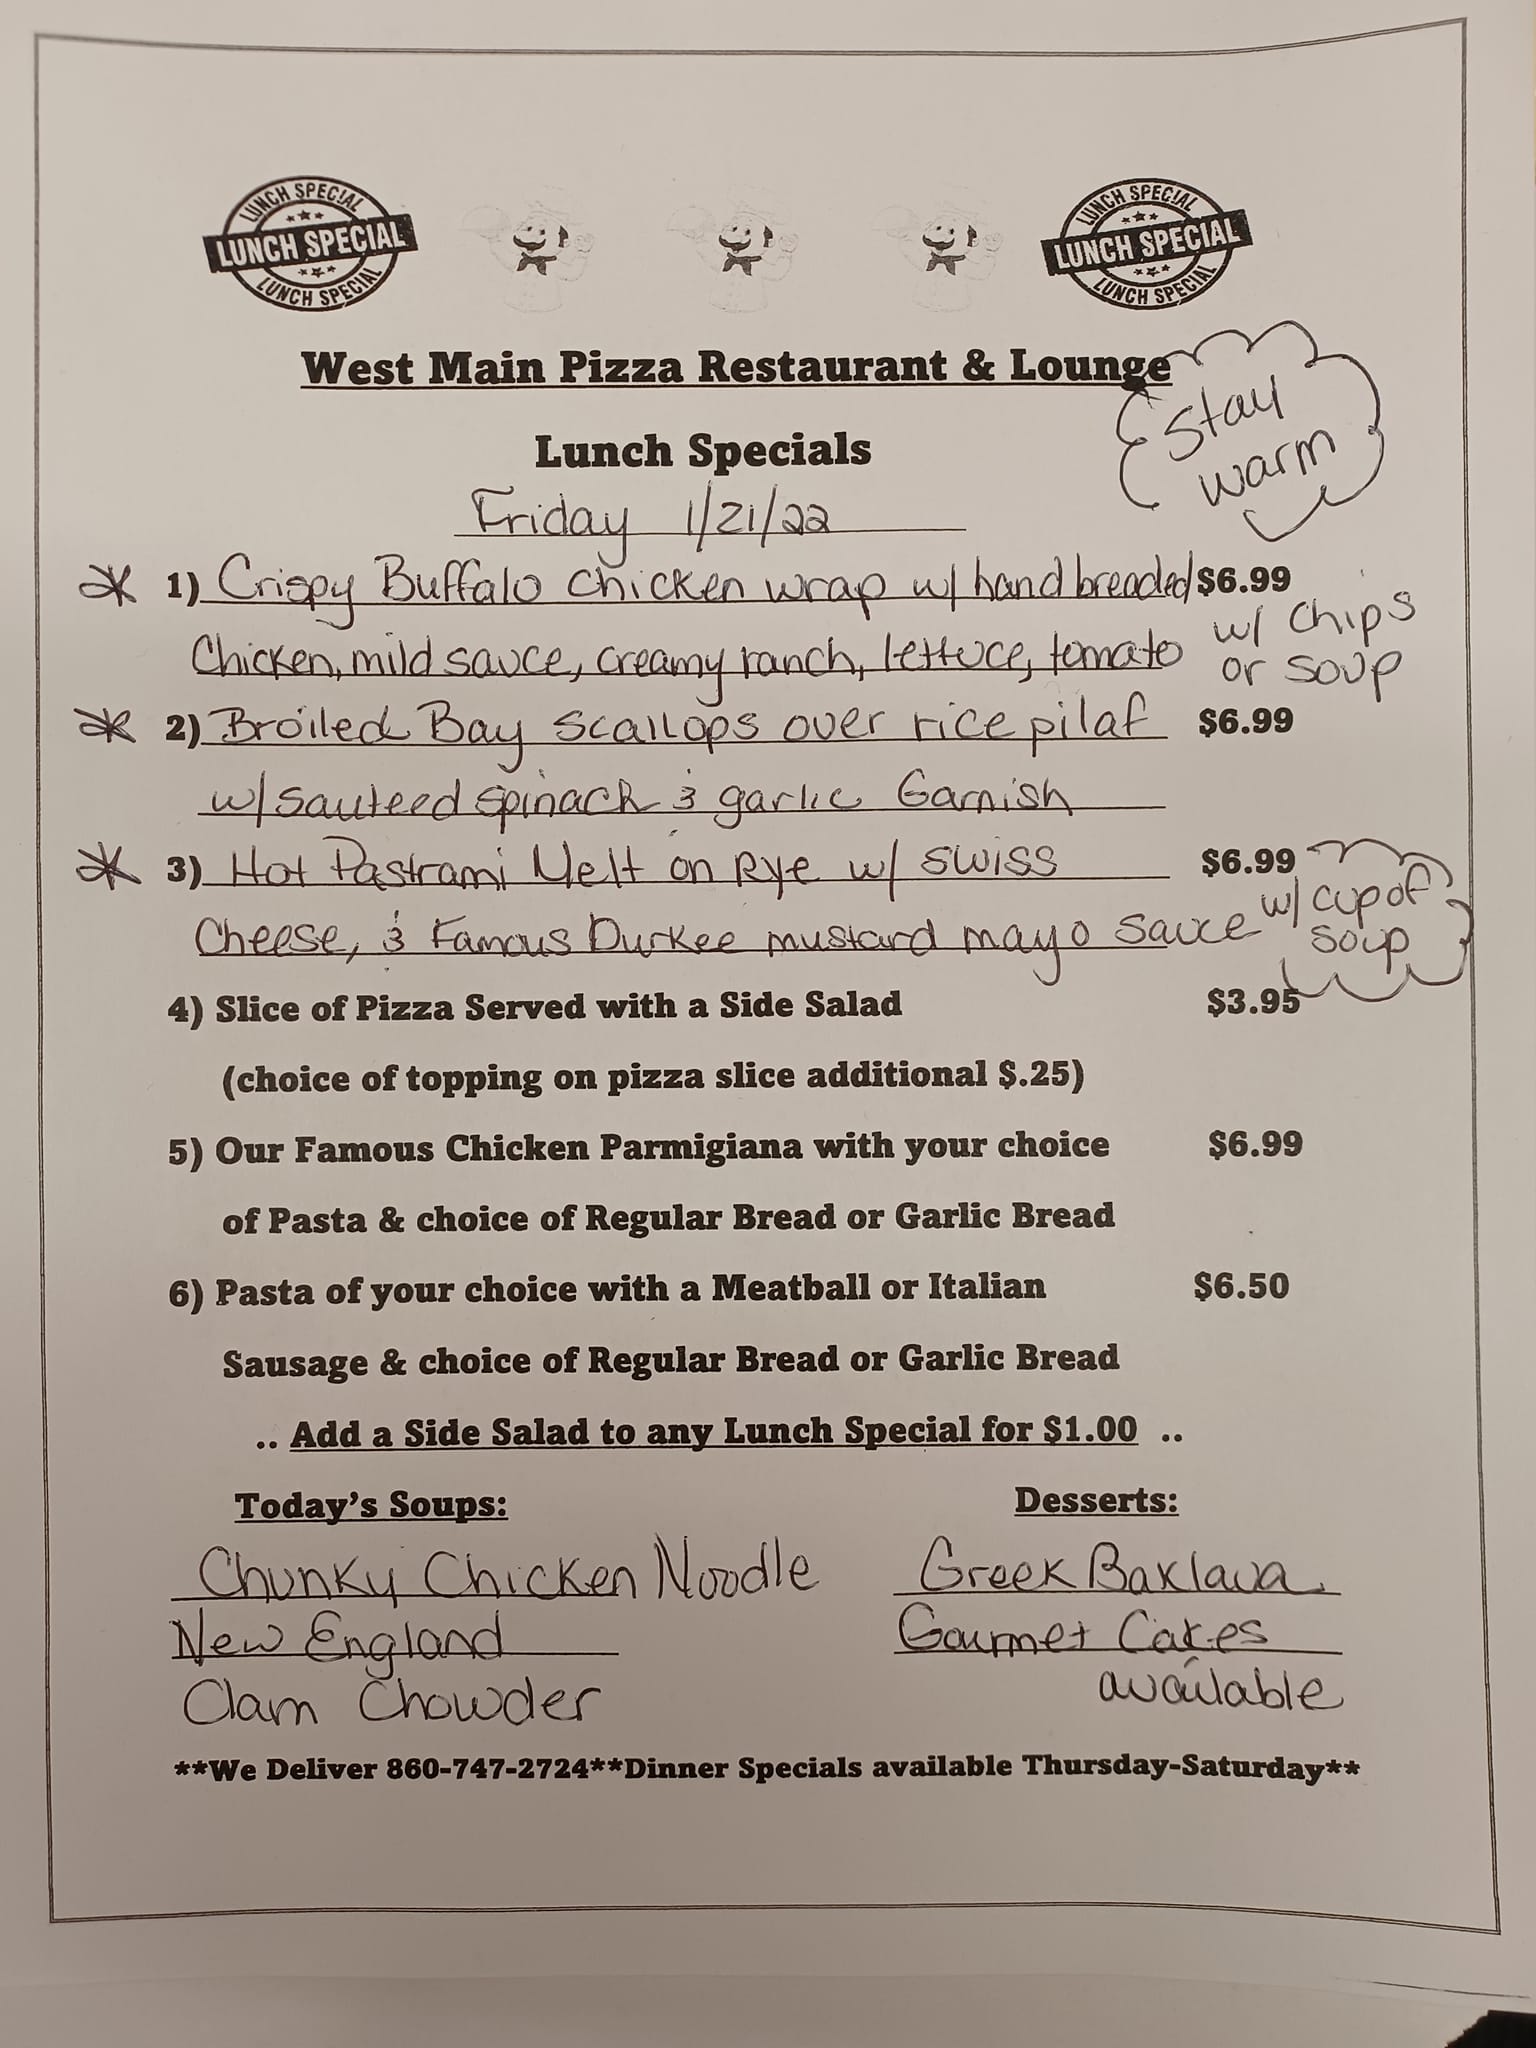 LUNCH SPECIAL LUNCH SPECIAL
LUNCH SPECIAL LUNCH SPECIAL
LUNCH SPECIAL LUNCH SPECIAL
West Main Pizza Restaurant & Lounge
Stay
warm
Lunch Specials
Friday 1/21/22
1) Crispy Buffalo chicken wrap w/ hand breaded $6.99
Chicken, mild sauce, creamy ranch, lettuce, tomato w/ chips
or soup
2) Broiled Bay scallops over rice pilaf $6.99
w/ sauteed spinach & garlic Garnish
3) Hot Pastrami Melt on Rye w/ swiss $6.99
Cheese, & Famous Durkee mustard mayo sauce w/ cup of
soup
4) Slice of Pizza Served with a Side Salad $3.95
(choice of topping on pizza slice additional $.25)
5) Our Famous Chicken Parmigiana with your choice $6.99
of Pasta & choice of Regular Bread or Garlic Bread
6) Pasta of your choice with a Meatball or Italian $6.50
Sausage & choice of Regular Bread or Garlic Bread
.. Add a Side Salad to any Lunch Special for $1.00 ..
Today's Soups: Desserts:
Chunky Chicken Noodle Greek Baklava
New England Gourmet Cakes
Clam Chowder available
**We Deliver 860-747-2724**Dinner Specials available Thursday-Saturday**